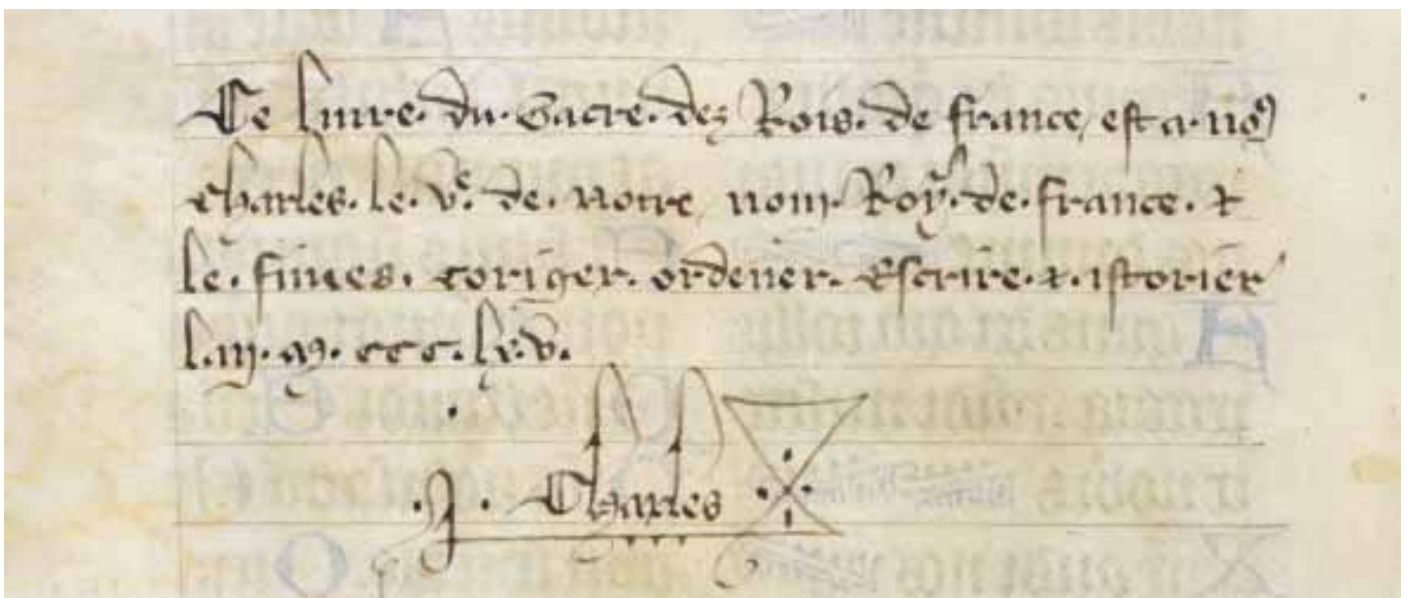 Ce livre. du. Sacre. dez Rois. de france, est a. nous
Charles. le. v.e de. notre nom. Roy. de. france. et
le. fimes. coriger. ordener. Escrire. et. istorier
l.an. m. ccc. lx.v.
Charles